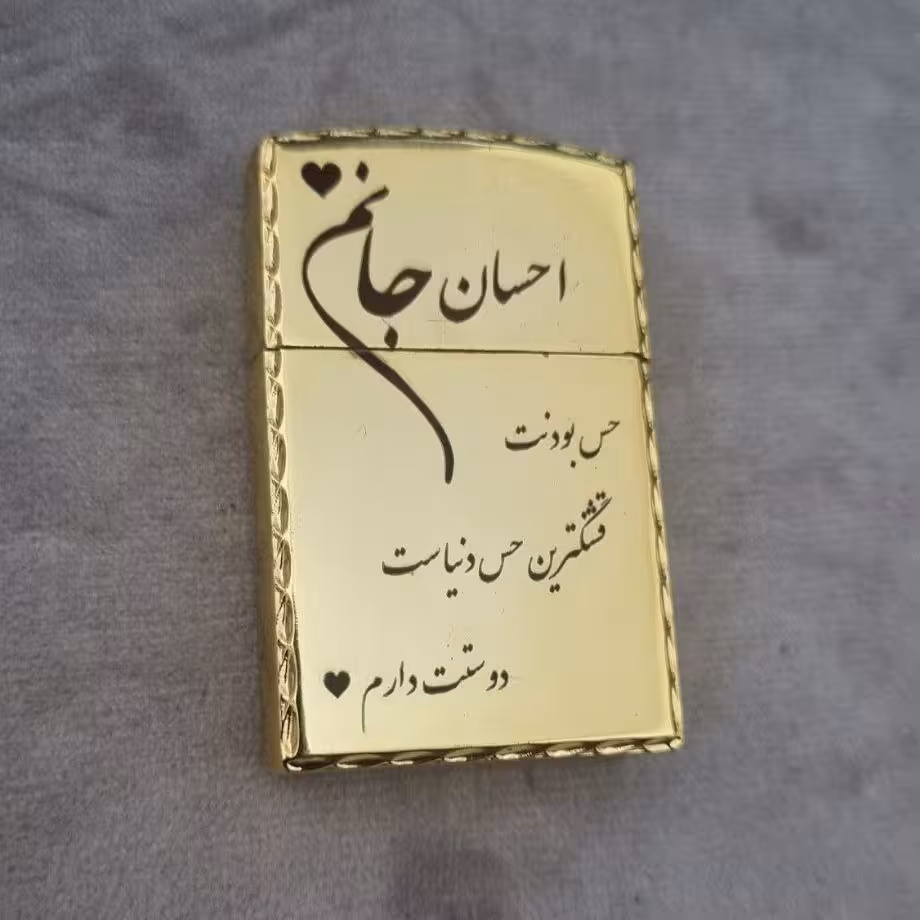 احسان جانم ♥
حس بودنت
قشنگترین حس دنیاست
دوستت دارم ♥